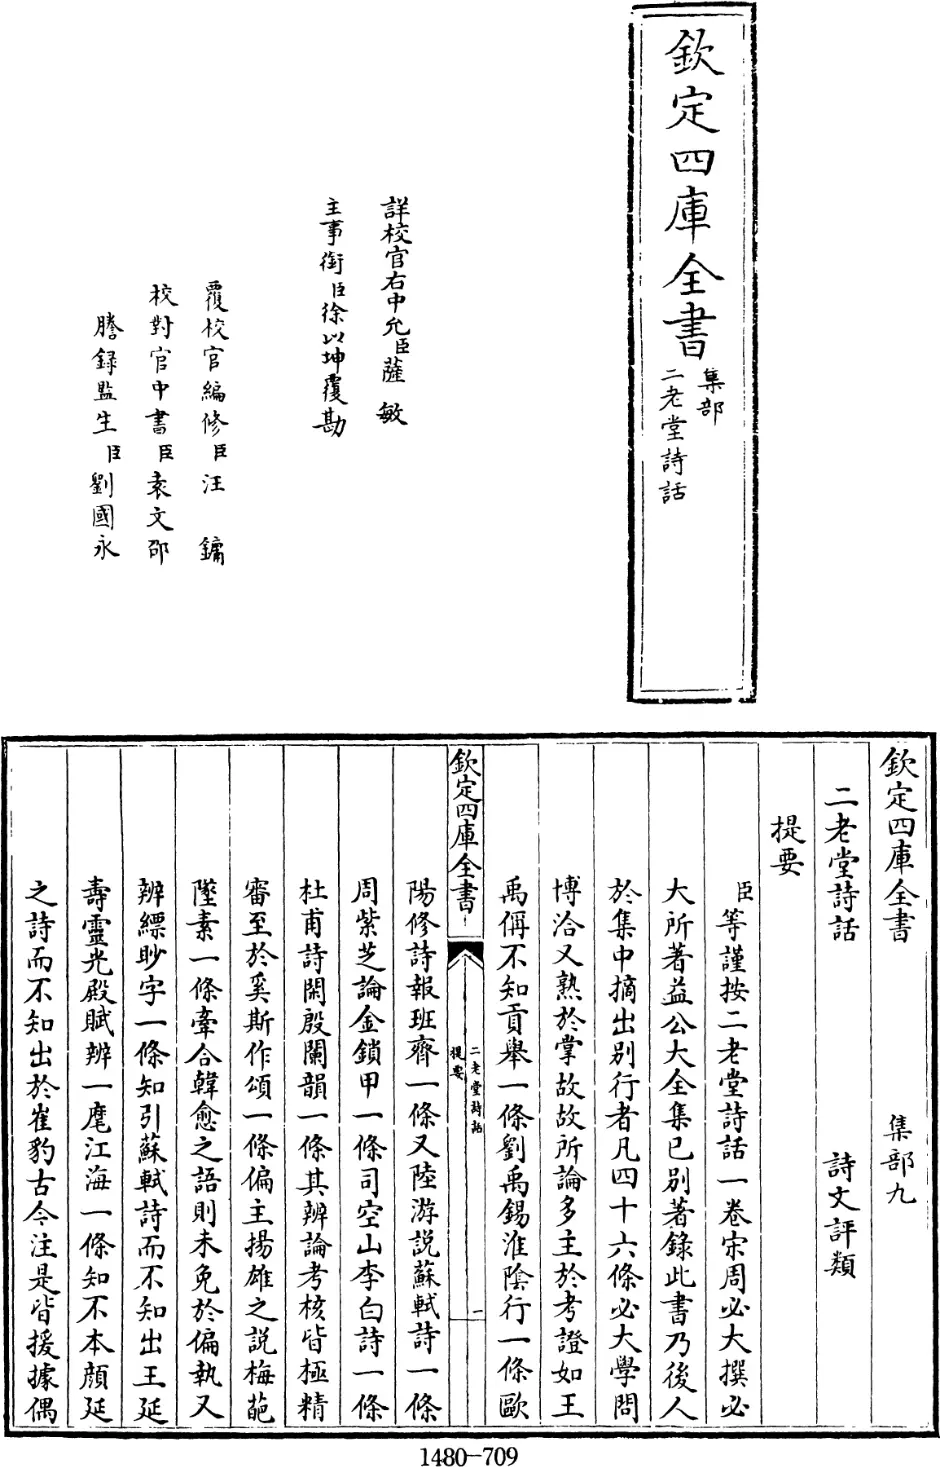 欽定四庫全書
集部
二老堂詩話
詳校官右中允臣薩敏
主事銜臣徐以坤覆勘
覆校官編修臣汪鏞
校對官中書臣袁文邵
謄錄監生臣劉國永
欽定四庫全書 集部九
二老堂詩話 詩文評類
提要
臣等謹按二老堂詩話一卷宋周必大撰必
大所著益公大全集已別著錄此書乃後人
於集中摘出別行者凡四十六條必大學問
博洽又熟於掌故故所論多主於考證如王
禹偁不知貢舉一條劉禹錫淮陰行一條歐
欽定四庫全書
二老堂詩話
提要
一
陽修詩報班齋一條又陸游說蘇軾詩一條
周紫芝論金鎖甲一條司空山李白詩一條
杜甫詩閑殷闌韻一條其辨論考核皆極精
審至於奚斯作頌一條偏主揚雄之說梅葩
墜素一條牽合韓愈之語則未免於偏執又
辨縹眇字一條知引蘇軾詩而不知出王延
壽靈光殿賦辨一麾江海一條知不本顏延
之詩而不知出於崔豹古今注是皆援據偶
1480-709